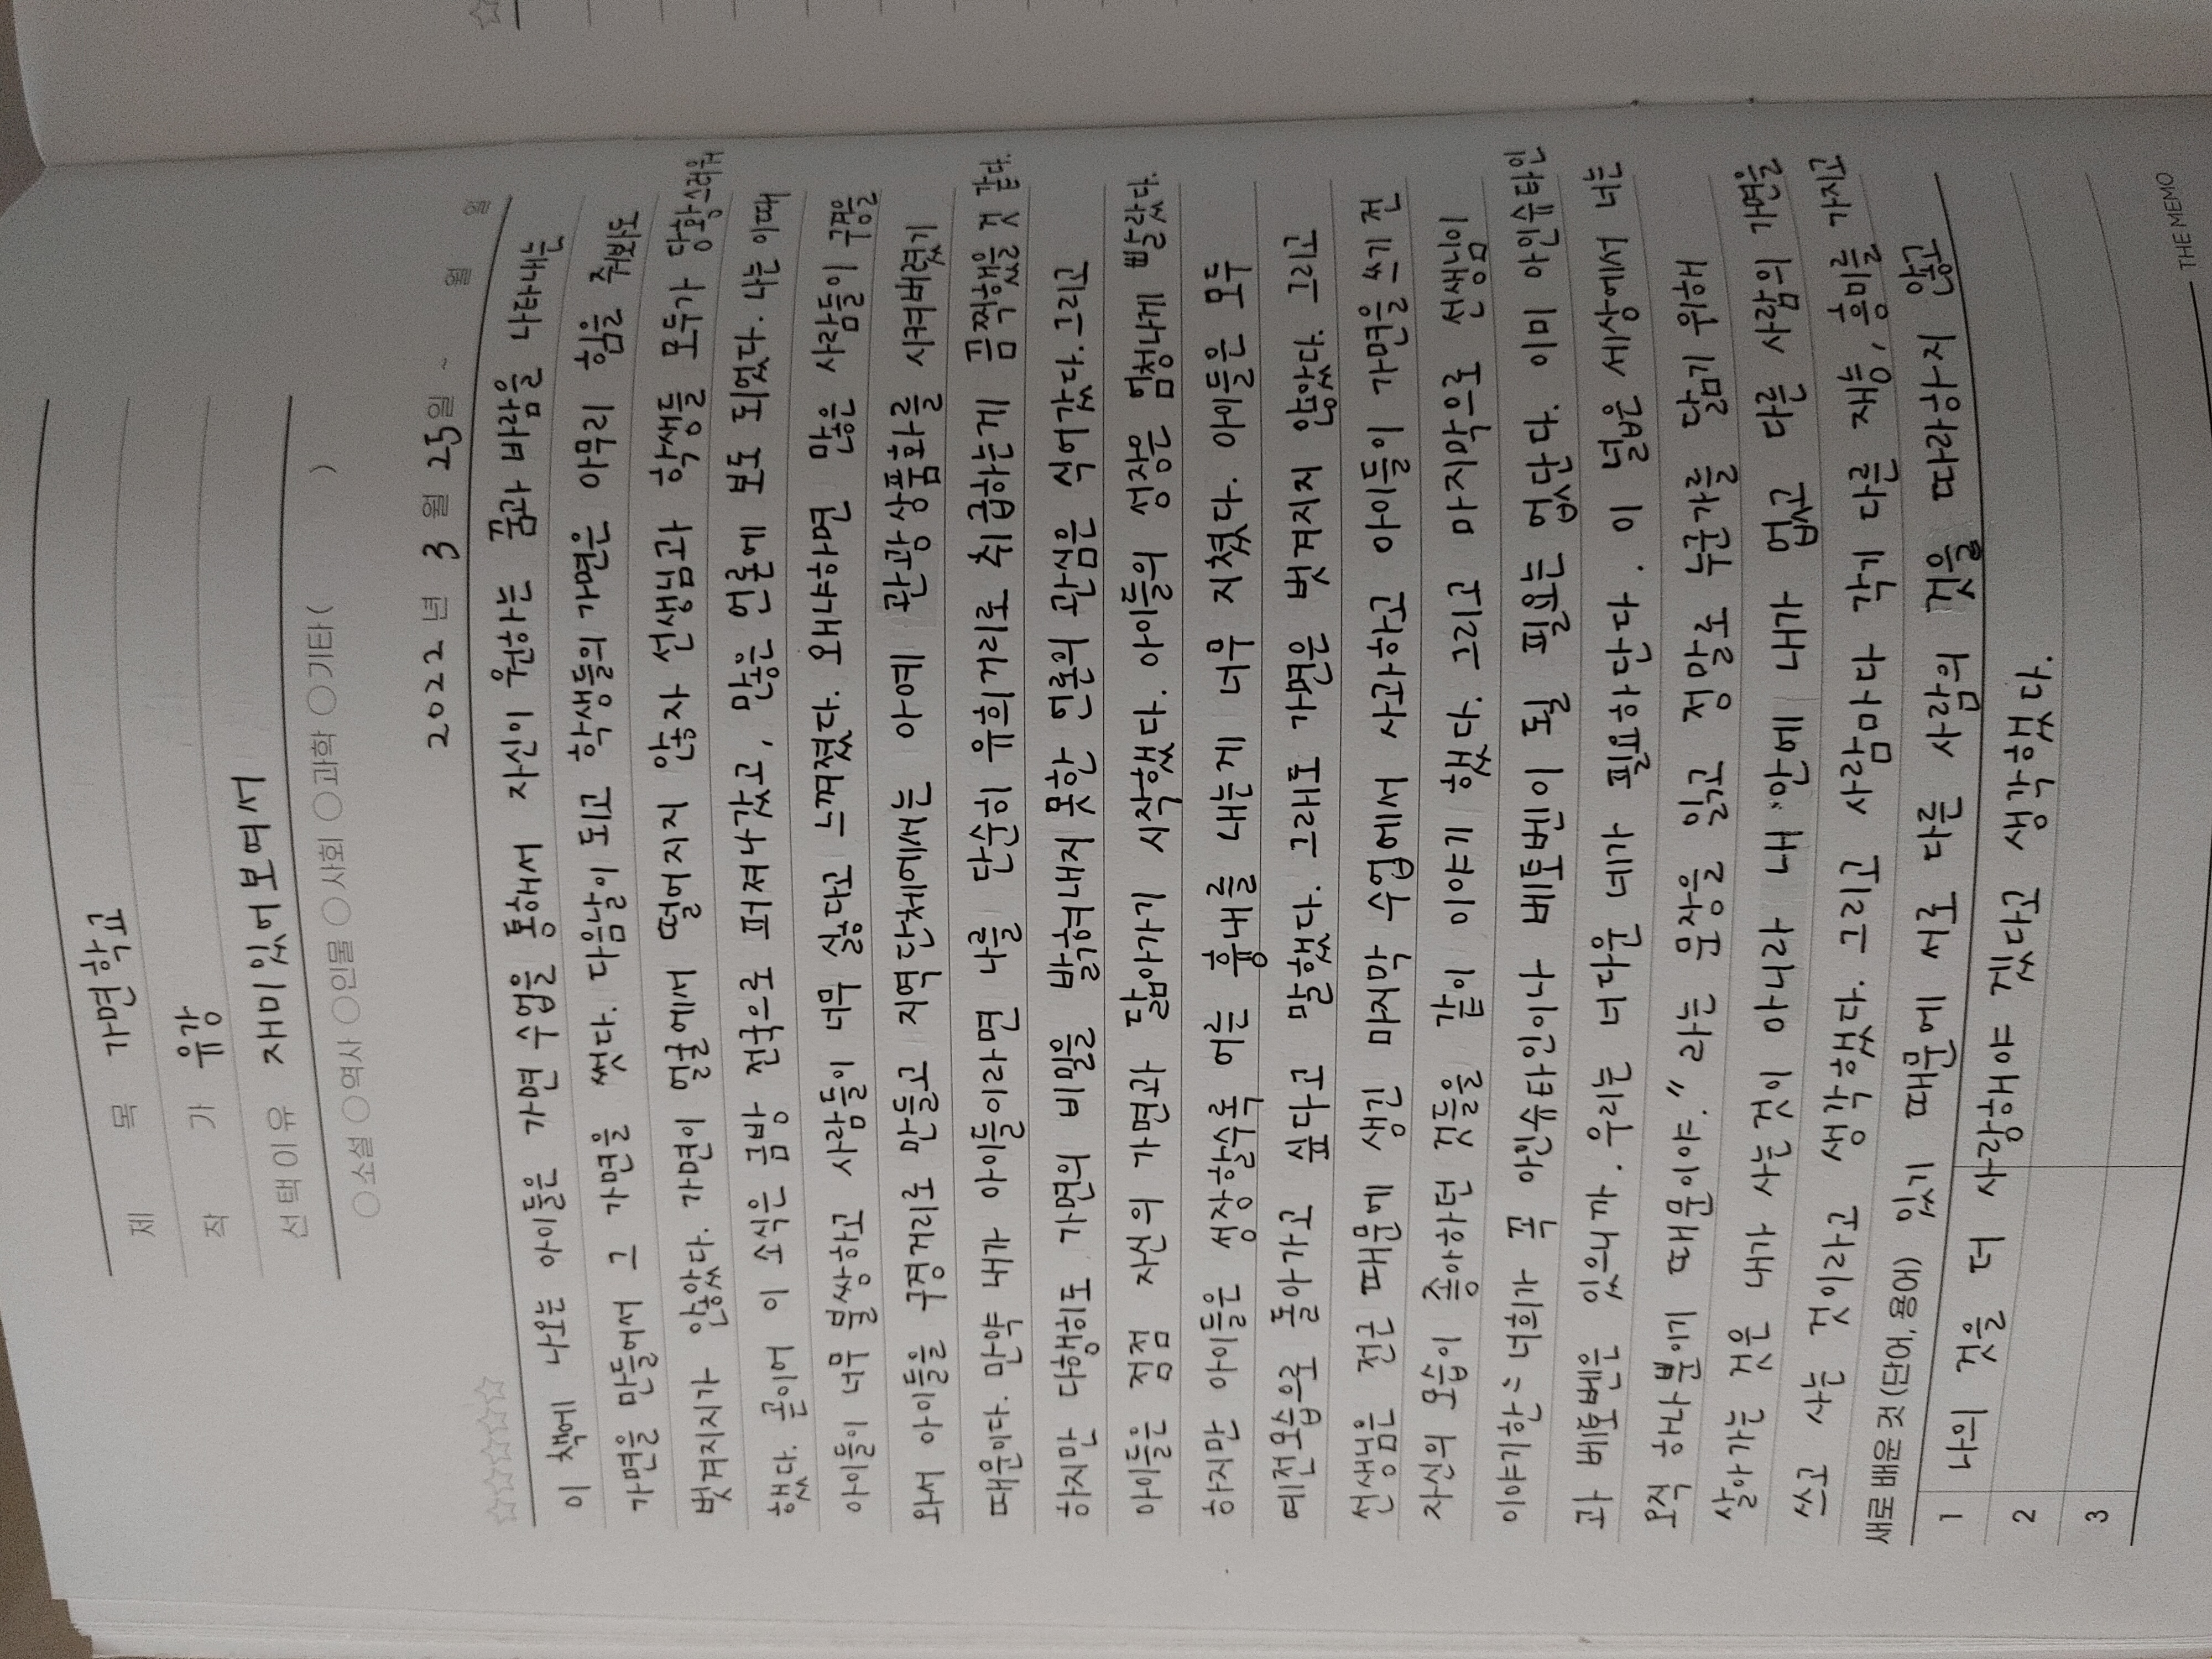 제 목 가면학교
작 가 유강
선택이유 재미있어보여서
○소설 ○역사 ○인물 ○사회 ○과학 ○기타( )
2022년 3월 25일 ~ 월 일
☆☆☆☆☆
이 책에 나오는 아이들은 가면 수업을 통해서 자신이 원하는 꿈과 바람을 나타내는
가면을 만들어서 그 가면을 썼다. 다음날이 되고 학생들의 가면은 아무리 힘을 줘봐도
벗겨지지가 않았다. 가면이 얼굴에서 떨어지지 않자 선생님과 학생들 모두가 당황스러워
했다. 곧이어 이 소식은 금방 전국으로 퍼져나갔고, 많은 언론에 보도 되었다. 나는 이때
아이들이 너무 불쌍하고 사람들이 너무 싫다고 느껴졌다. 왜냐하면 많은 사람들이 구경을
와서 아이들을 구경거리로 만들고 지역단체에서는 아예 관광상품화를 시켜버렸기
때문이다. 만약 내가 아이들이라면 나를 단순히 유희거리로 취급하는게 끔찍했을 것 같다.
하지만 다행히도 가면의 비밀을 밝혀내지 못한 언론의 관심은 식어갔다. 그리고
아이들은 점점 자신의 가면과 닮아가기 시작했다. 아이들의 성장은 엄청나게 빨랐다.
하지만 아이들은 성장할수록 어른 흉내를 내는게 너무 지쳤다. 아이들은 모두
예전모습으로 돌아가고 싶다고 말했다. 그래도 가면은 벗겨지지 않았다. 그리고
선생님은 전근 때문에 생긴 마지막 수업에서 사과하고 아이들이 가면을 쓰기 전
자신의 모습이 좋아하던 것들을 같이 이야기 했다. 그리고 마지막으로 선생님이
이야기한 "너희가 꼭 아인슈타인이나 베토벤이 될 필요는 없단다. 이미 아인슈타인
과 베토벤은 있으니까. 우리는 너다운 네가 필요하단다. 이 넓은 세상에서 너는
오직 하나뿐이기 때문이야." 라는 문장을 읽고 정말로 누군가를 닮기 위해
살아가는 것은 내가 사는 것이 아니라 내 안에 내가 없고 다른 사람의 가면을
쓰고 사는 것이라고 생각했다. 그리고 사람마다 각기 다른 재능, 흥미를 가지고
새로 배운 것 (단어, 용어) 있기 때문에 서로 다른 사람의 것을 따라하지 않고
1 나의 것을 더 사랑해야 겠다고 생각했다.
2
3
THE MEMO